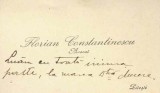 Florian Constantinescu
Avocat
Luăm cu toată inima
parte, la marea
Dvs. durere